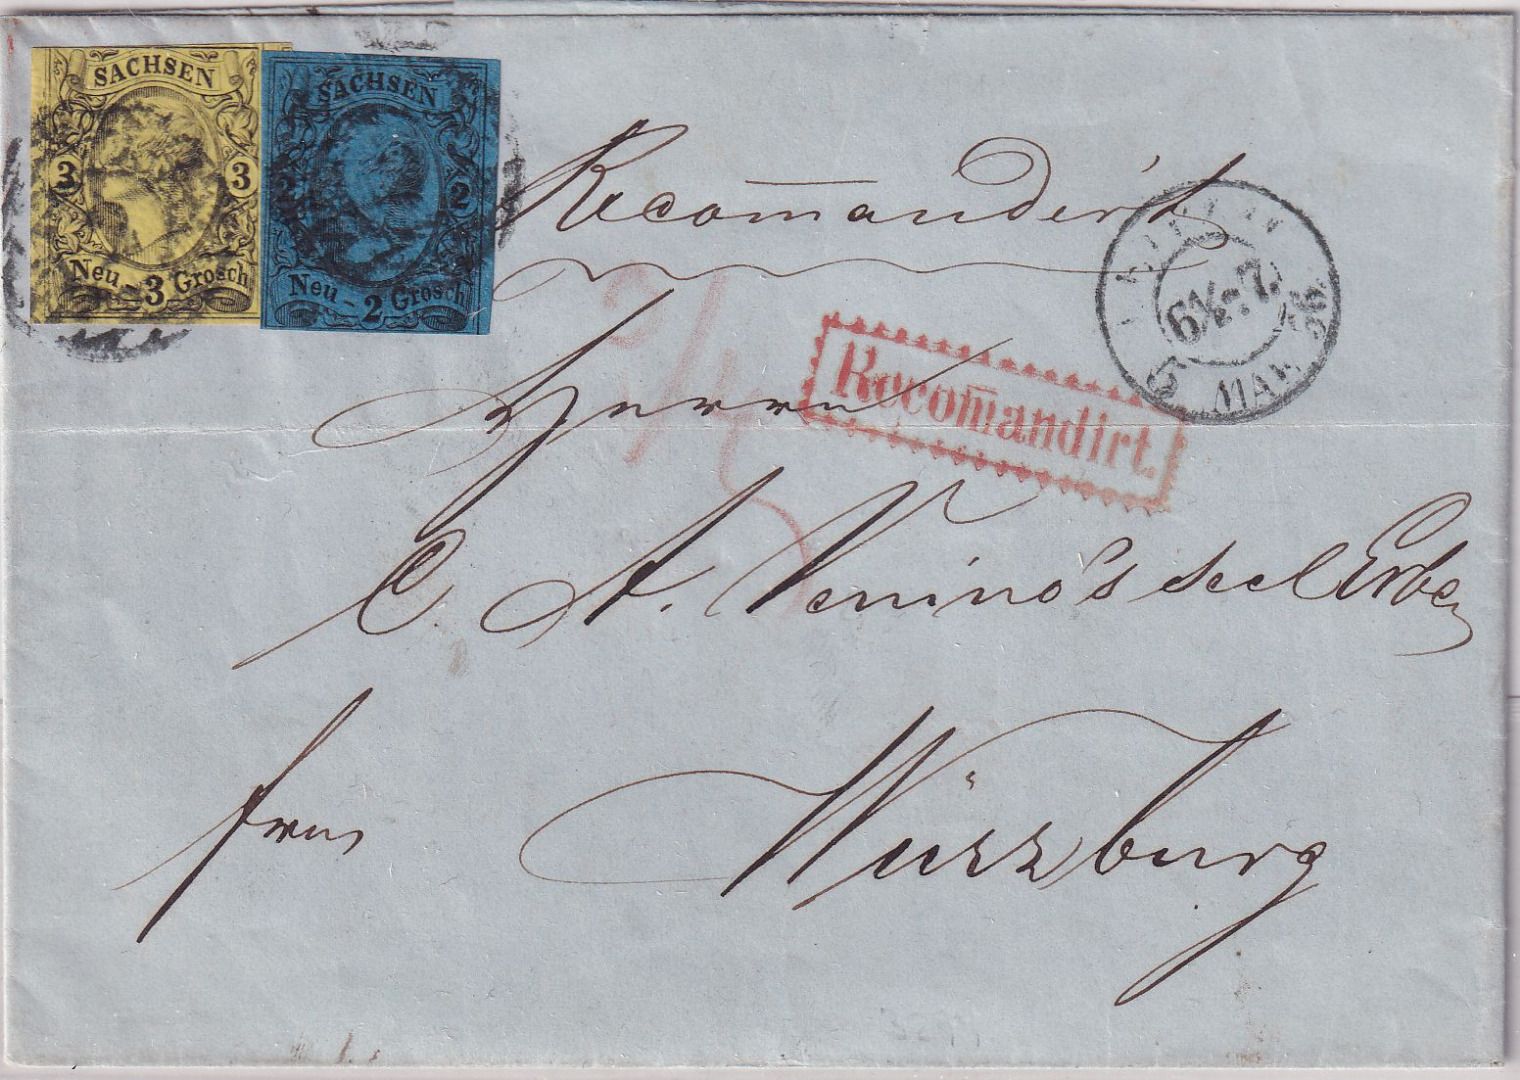 SACHSEN
3 3
Neu - 3 Grosch
SACHSEN
2 2
Neu - 2 Grosch
Recom̄andirt
LEIPZIG
6½-7
5 MAI. 56
Recom̄andirt.
Herren
C. A. Venino's seel Erben
franco
Würzburg